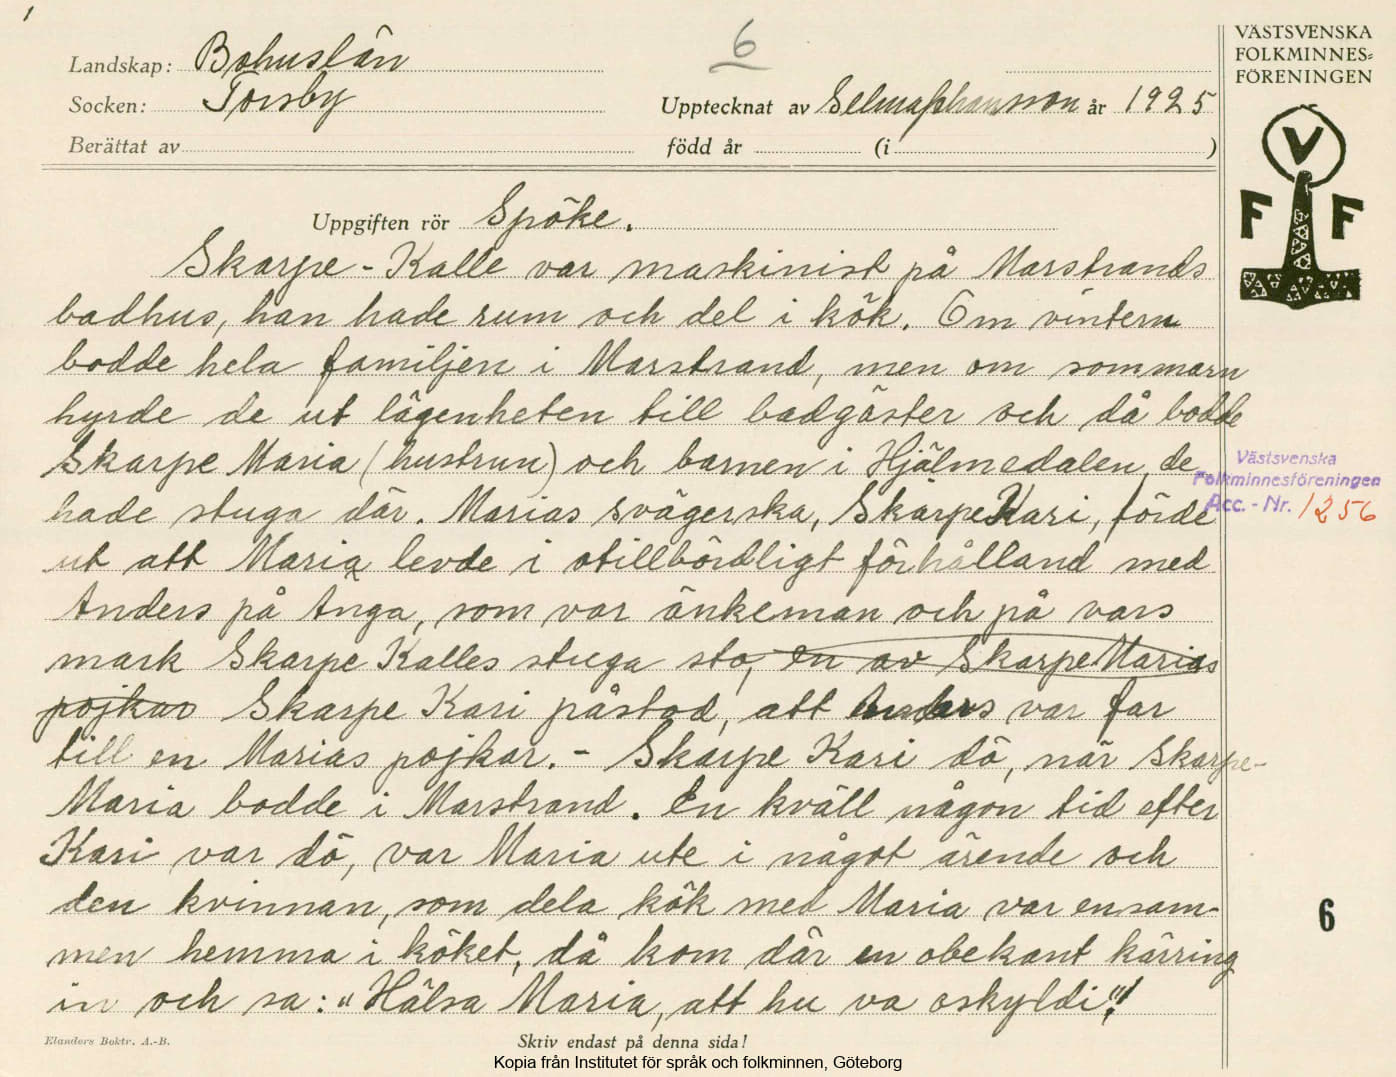 1
6
VÄSTSVENSKA
FOLKMINNES=
FÖRENINGEN
V
F F
Landskap: Bohuslän
Socken: Torsby
Upptecknat av Selma Johansson år 1925
Berättat av
född år (i )
Uppgiften rör Spöke.
Skarpe-Kalle var maskinist på Marstrands
badhus, han hade rum och del i kök. Om vintern
bodde hela familjen i Marstrand, men om sommarn
hyrde de ut lägenheten till badgäster och då bodde
Skarpe Maria (hustrun) och barnen i Hjälmedalen, de
hade stuga där. Marias svägerska, Skarpe Kari, förde
ut att Maria levde i otillbördligt förhålland med
Anders på Ånga, som var änkeman och på vars
mark Skarpe Kalles stuga sto, en av Skarpe Marias
pojkar Skarpe Kari påstod, att Anders var far
till en Marias pojkar. - Skarpe Kari dö, när Skarpe-
Maria bodde i Marstrand. En kväll någon tid efter
Kari var dö, var Maria ute i något ärende och
den kvinnan, som dela kök med Maria var ensam-
men hemma i köket, då kom där en obekant kärring
in och sa: "Hälsa Maria, att hu va oskyldi"!
Västsvenska
Folkminnesföreningen
Acc. - Nr. 1256
6
Elanders Boktr. A.-B.
Skriv endast på denna sida!
Kopia från Institutet för språk och folkminnen, Göteborg